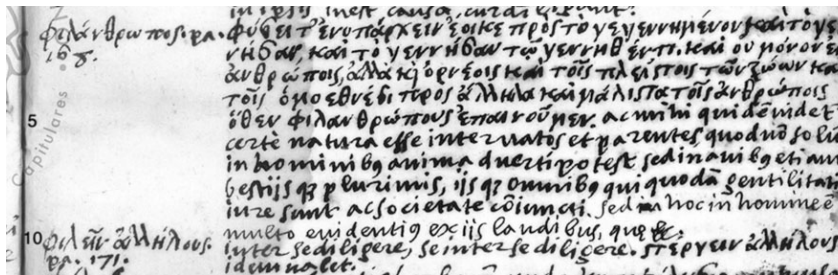 in ipsis inest causa, cur diligant.
φιλάνθρωπος. pa. φύσει τ' ἐνυπάρχειν ἔοικε πρὸς τὸ γεγεννημένον καὶ τὸ γε
168. νῆσαν, καὶ τὸ γεννῆσαν τῷ γεννηθέντι. καὶ οὐ μόνον ἐ
ἀνθρώποις, ἀλλὰ κὶ ὀρνέοις καὶ τοῖς πλείστοις τῶν ζώων κα
τοῖς ὁμοεθνέσι πρὸς ἄλληλα καὶ μάλιστα τοῖς ἀνθρώποις
5 ὅθεν φιλανθρώπους ἐπαινοῦμεν. ac mihi quidē videt
certè natura esse inter natos et parentes, quod nō solū
in hominibꝰ animaduerti potest sed in auibꝰ etiam
bestijs qꝫ plurimis, ijs qꝫ omnibꝰ qui quodā gentilitati
iure sunt ac societate cōiuncti. sed hoc in homine e
10 φιλεῖν ἀλλήλους. multo euidentiꝰ ex iis laudibus,
pa. 171. inter se diligere, se inter se diligere. στέργειν ἀλλήλους
idem valet.
Capitulares